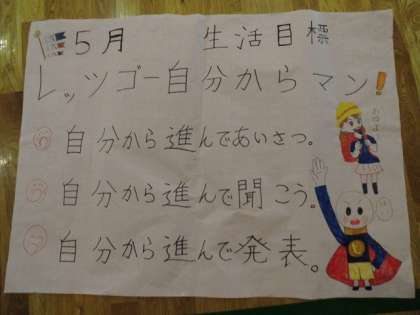 5月 生活目標
レッツゴー自分からマン!
自分から進んであいさつ。
自分から進んで聞こう。
自分から進んで発表。